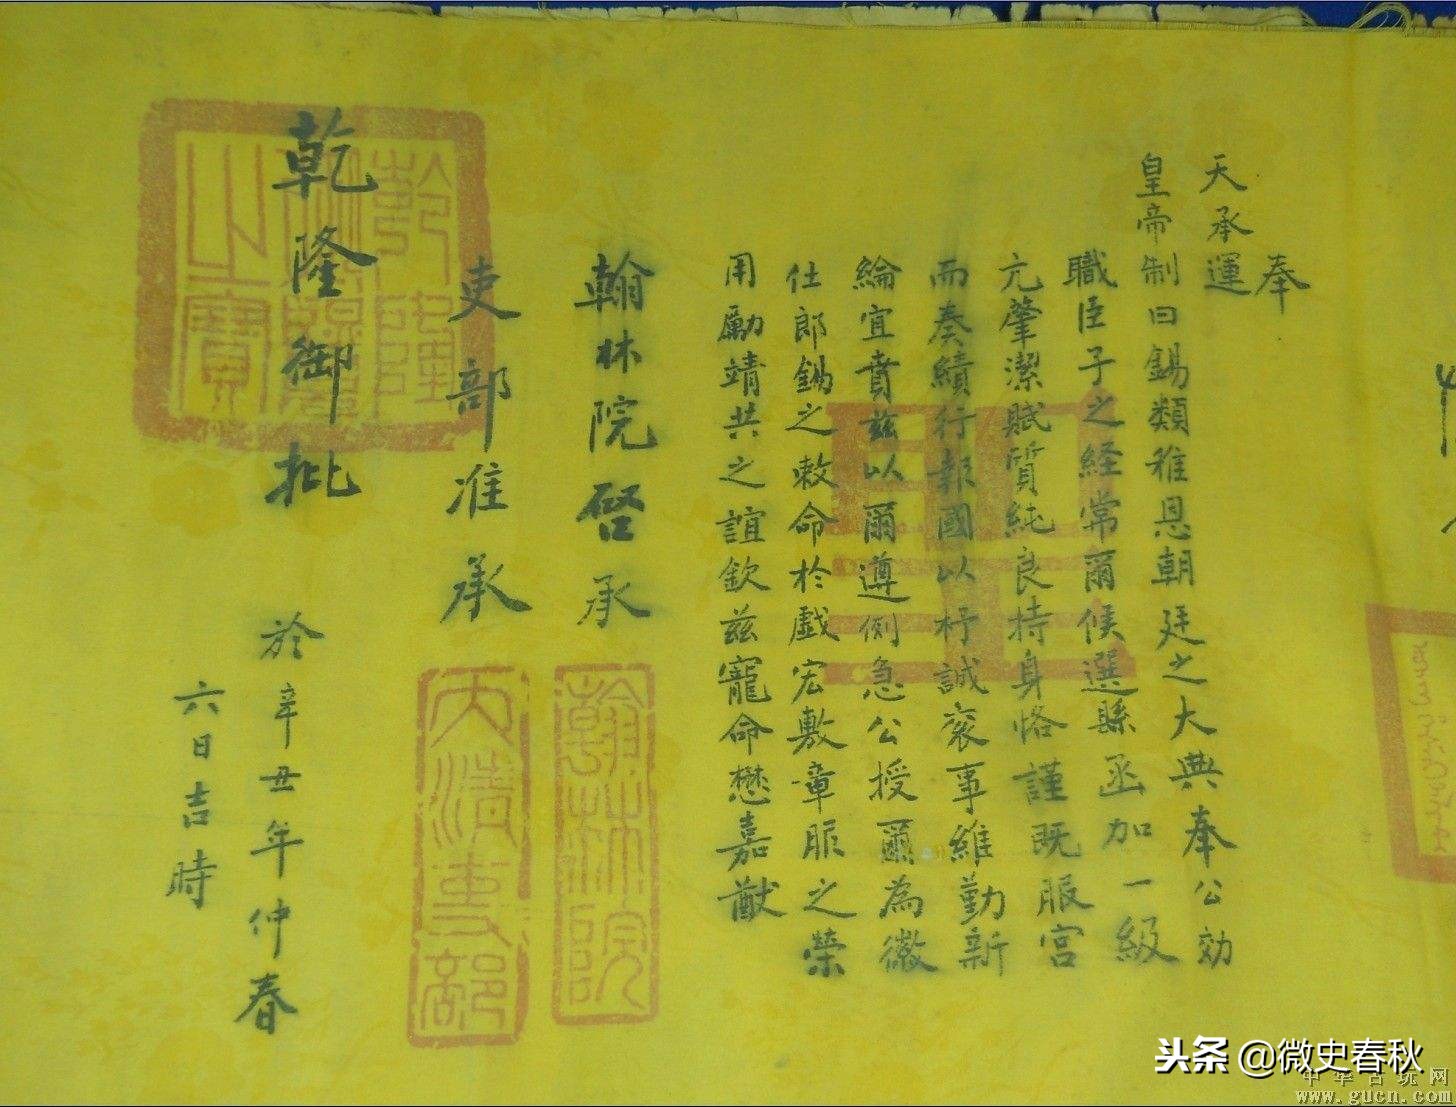 奉
天承運
皇帝制曰錫類雅恩朝廷之大典奉公効
職臣子之経常爾候選縣丞加一級
亢肇潔賦質純良持身恪謹既服官
而奏績行報國以杼誠衮事維勤新
綸宜賁兹以爾遵例急公授爾為徽
仕郎錫之敕命於戲宏敷章服之榮
用勵靖共之誼欽兹寵命懋嘉猷
翰林院啓承
翰林院
吏部准承
大清吏部
乾隆御批
乾隆
之寶
於辛丑年仲春
六日吉時
头条 @微史春秋
中华古玩网
www.gucn.com